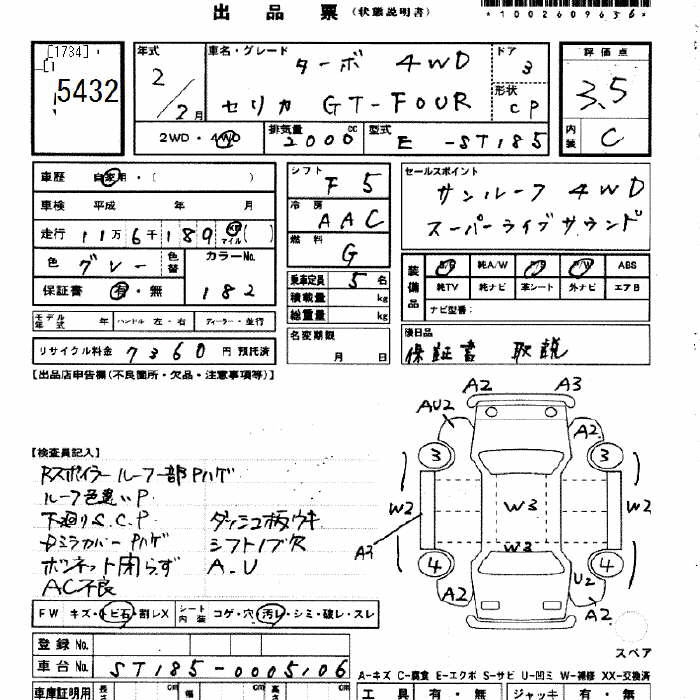 出品票 (状態説明書)
*1002609656*
[1734]
5432
年式 2/2月
車名・グレード ターボ 4WD
セリカ GT-FOUR
ドア 3
形状 CP
評価点 3.5
内装 C
2WD・4WD 排気量 2000cc 型式 E-ST185
車歴 自家用・( )
車検 平成 年 月
走行 11万6千189 km マイル ( )
色 グレー 色替 カラーNo. 182
保証書 有・無
モデル年式 年 ハンドル 左・右 ディーラー・並行
リサイクル料金 7360 円 預託済
シフト F5
冷房 AAC
燃料 G
乗車定員 5名
積載量 kg
総重量 kg
名変期限 月 日
セールスポイント
サンルーフ 4WD
スーパーライブサウンド
装備品 P/S 純A/W P/W ABS
純TV 純ナビ 革シート 外ナビ エアB
ナビ型番:
後日品
保証書 取説
[出品店申告欄(不良箇所・欠品・注意事項等)]
[検査員記入]
Rスポイラー ルーフ一部Pハゲ
ルーフ色違いP
下廻りS.C.P ダッシュ板ウキ
Dミラカバー Pハゲ シフトノブ欠
ボンネット閉らず A-U
AC不良
A2 A3
AU2 A2
3 3
W2 W3 W2
A2 W3
4 4
A2 U2 A2
スペア
FW キズ・トビ石・割レX シート内装 コゲ・穴・汚レ・シミ・破レ・スレ
登録No.
車台No. ST185-0005106
A-キズ C-腐食 E-エクボ S-サビ U-凹ミ W-補修 XX-交換済
車庫証明用 長さ cm 幅 cm 高さ cm
工具 有・無 ジャッキ 有・無